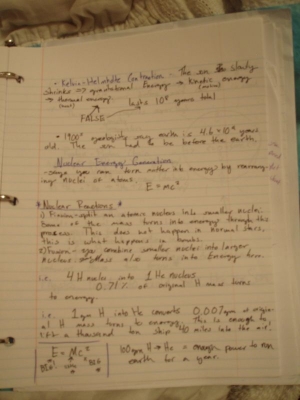 • Kelvin-Helmholtz Contraction - The sun is slowly
shrinks => gravitational Energy -> Kinetic energy
-> thermal energy (motion)
(heat) lasts 10⁸ years total
FALSE
• 1900's geologists say earth is 4.6 × 10⁹ years
old. The sun had to be before the earth.
Nuclear Energy Generation
- stars can turn matter into energy by rearrang-
ing nuclei of atoms.
E = mc²
Nuclear Reactions
1) Fission - split an atomic nucleus into smaller nuclei.
Some of the mass turns into energy through this
process. This does not happen in normal stars,
this is what happens in bombs.
2) Fusion - combine smaller nuclei into larger
nucleus. Mass also turns into Energy here.
i.e. 4 H nuclei into 1 He nucleus
0.71% of original H mass turns
to energy.
i.e. 1 gm H into He converts 0.007 gm of origin-
al H mass turns to energy. This is enough to
lift a thousand ton ship 40 miles into the air!
E = Mc²
100 gm H -> He = enough power to run
earth for a year.